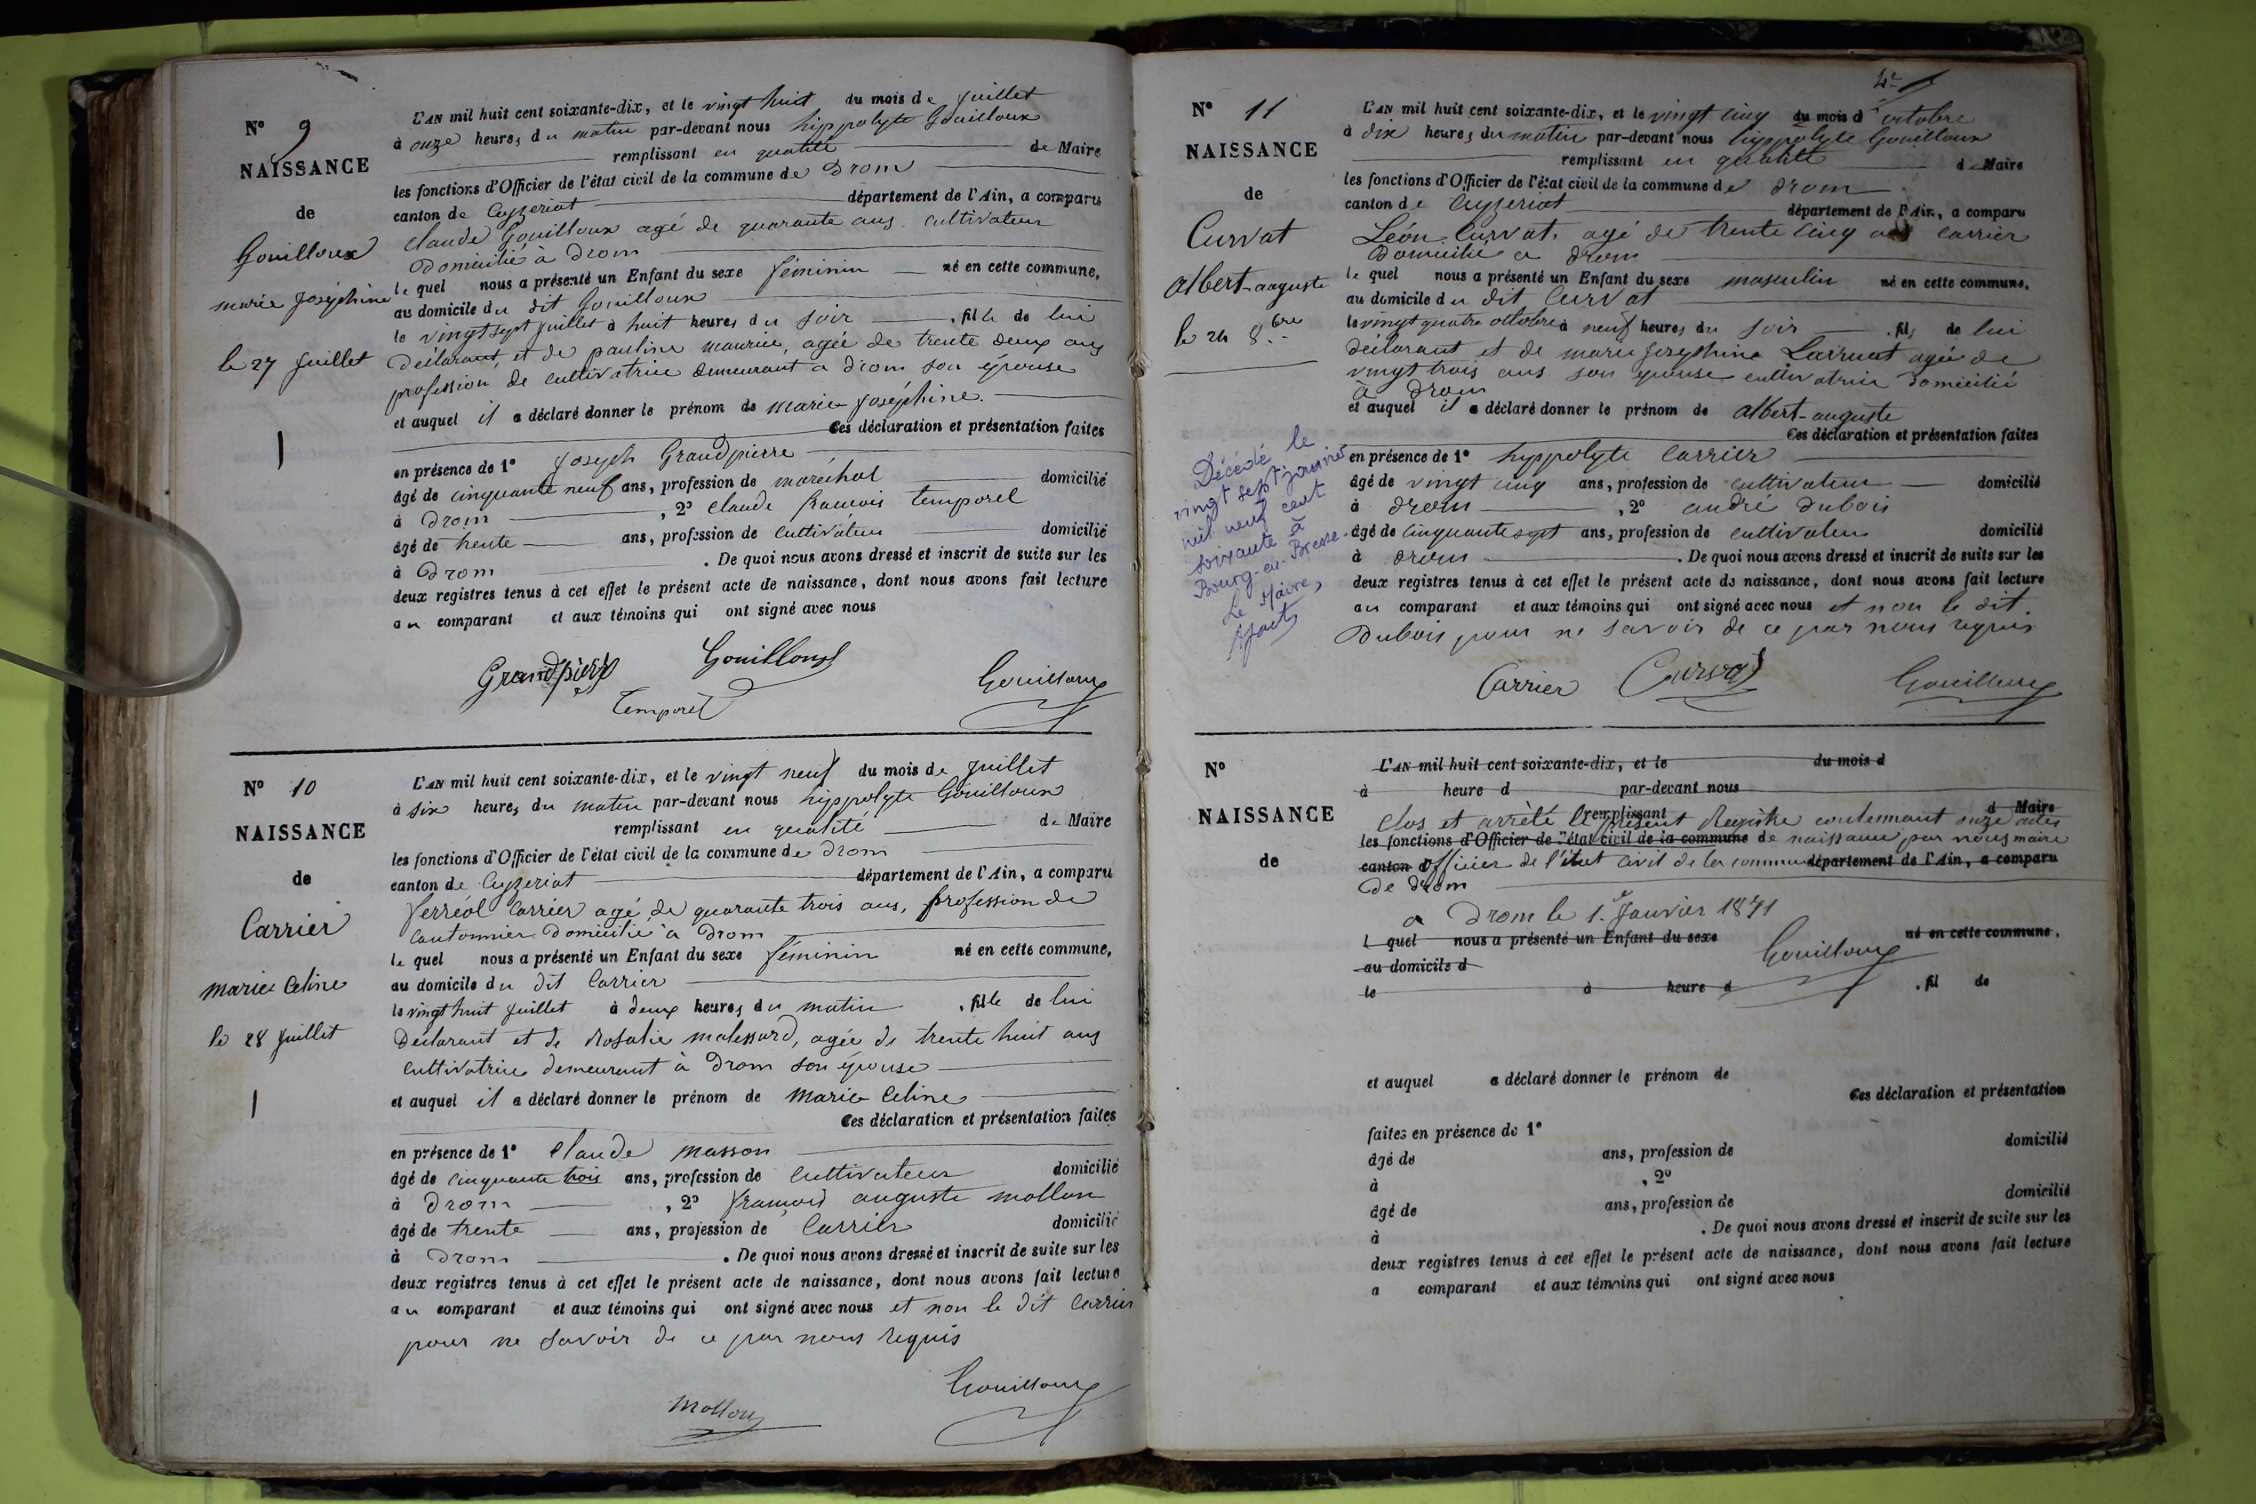 N° 9
NAISSANCE
de
Gouilloux
marie Joséphine
le 27 Juillet
L'AN mil huit cent soixante-dix, et le vingt huit du mois de Juillet
à onze heures du matin par-devant nous hippolyte Gouilloux
remplissant en qualité de Maire
les fonctions d'Officier de l'état civil de la commune de Drom
canton de Ceyzeriat département de l'Ain, a comparu
Claude Gouilloux agé de quarante ans cultivateur
Domicilié à Drom
le quel nous a présenté un Enfant du sexe féminin né en cette commune,
au domicile du dit Gouilloux
le vingt sept Juillet à huit heures du soir , fille de lui
Déclarant et de pauline maurice, agée de trente deux ans
profession de cultivatrice demeurant a Drom son épouse
et auquel il a déclaré donner le prénom de marie Joséphine.
Ces déclaration et présentation faites
en présence de 1° Joseph Grandpierre
âgé de cinquante neuf ans, profession de maréchal domicilié
à Drom , 2° Claude francois temporel
âgé de trente ans, profession de cultivateur domicilié
à Drom . De quoi nous avons dressé et inscrit de suite sur les
deux registres tenus à cet effet le présent acte de naissance, dont nous avons fait lecture
au comparant et aux témoins qui ont signé avec nous
Grandpierre Gouilloux
Temporel Gouilloux
N° 10
NAISSANCE
de
Carrier
marie Celine
le 28 Juillet
L'AN mil huit cent soixante-dix, et le vingt neuf du mois de Juillet
à six heures du matin par-devant nous hippolyte Gouilloux
remplissant en qualité de Maire
les fonctions d'Officier de l'état civil de la commune de Drom
canton de Ceyzeriat département de l'Ain, a comparu
ferréol Carrier agé de quarante trois ans, profession de
cantonnier Domicilié a Drom
le quel nous a présenté un Enfant du sexe féminin né en cette commune,
au domicile du dit Carrier
le vingt huit Juillet à deux heures du matin , fille de lui
Déclarant et de Rosalie malessard, agée de trente huit ans
cultivatrice demeurant à Drom son épouse
et auquel il a déclaré donner le prénom de Marie Celine
Ces déclaration et présentation faites
en présence de 1° Claude masson
âgé de cinquante trois ans, profession de cultivateur domicilié
à Drom , 2° francois auguste mollon
âgé de trente ans, profession de Carrier domicilié
à Drom . De quoi nous avons dressé et inscrit de suite sur les
deux registres tenus à cet effet le présent acte de naissance, dont nous avons fait lecture
au comparant et aux témoins qui ont signé avec nous et non le dit Carrier
pour ne savoir de ce par nous requis
Gouilloux
Mollon
N° 11
NAISSANCE
de
Curvat
albert-auguste
le 24 8.bre
Décédé le
vingt sept janvier
mil neuf cent
soixante à
Bourg-en-Bresse.
Le Maire,
L'AN mil huit cent soixante-dix, et le vingt cinq du mois d'octobre
à dix heures du matin par-devant nous hyppolyte Gouilloux
remplissant en qualité de Maire
les fonctions d'Officier de l'état civil de la commune de Drom
canton de Ceyzeriat département de l'Ain, a comparu
Léon Curvat, agé de trente cinq ans carrier
Domicilié a Drom
le quel nous a présenté un Enfant du sexe masculin né en cette commune,
au domicile du dit Curvat
le vingt quatre octobre à neuf heures du soir , fils de lui
Déclarant et de marie Josephine Larruat agée de
vingt trois ans son epouse cultivatrice domicilié
à Drom
et auquel il a déclaré donner le prénom de albert-auguste
Ces déclaration et présentation faites
en présence de 1° hyppolyte Carrier
âgé de vingt cinq ans, profession de cultivateur domicilié
à Drom , 2° andré Dubois
âgé de cinquante sept ans, profession de cultivateur domicilié
à Drom . De quoi nous avons dressé et inscrit de suite sur les
deux registres tenus à cet effet le présent acte de naissance, dont nous avons fait lecture
au comparant et aux témoins qui ont signé avec nous et non le dit.
Dubois pour ne savoir de ce par nous requis
Carrier Curvat Gouilloux
N°
NAISSANCE
de
L'AN mil huit cent soixante-dix, et le du mois d
à heure d par-devant nous
remplissant d Maire
Clos et arrêté le présent Registre contenant onze actes
les fonctions d'Officier de l'état civil de la commune de naissance par nous maire
canton d officier de l'état civil de la commune département de l'Ain, a comparu
de Drom
a Drom le 1.er Janvier 1871
l quel nous a présenté un Enfant du sexe né en cette commune,
au domicile d Gouilloux
le à heure d , fil de
et auquel a déclaré donner le prénom de
Ces déclaration et présentation
faites en présence de 1°
âgé de ans, profession de domicilié
à , 2°
âgé de ans, profession de domicilié
à . De quoi nous avons dressé et inscrit de suite sur les
deux registres tenus à cet effet le présent acte de naissance, dont nous avons fait lecture
a comparant et aux témoins qui ont signé avec nous